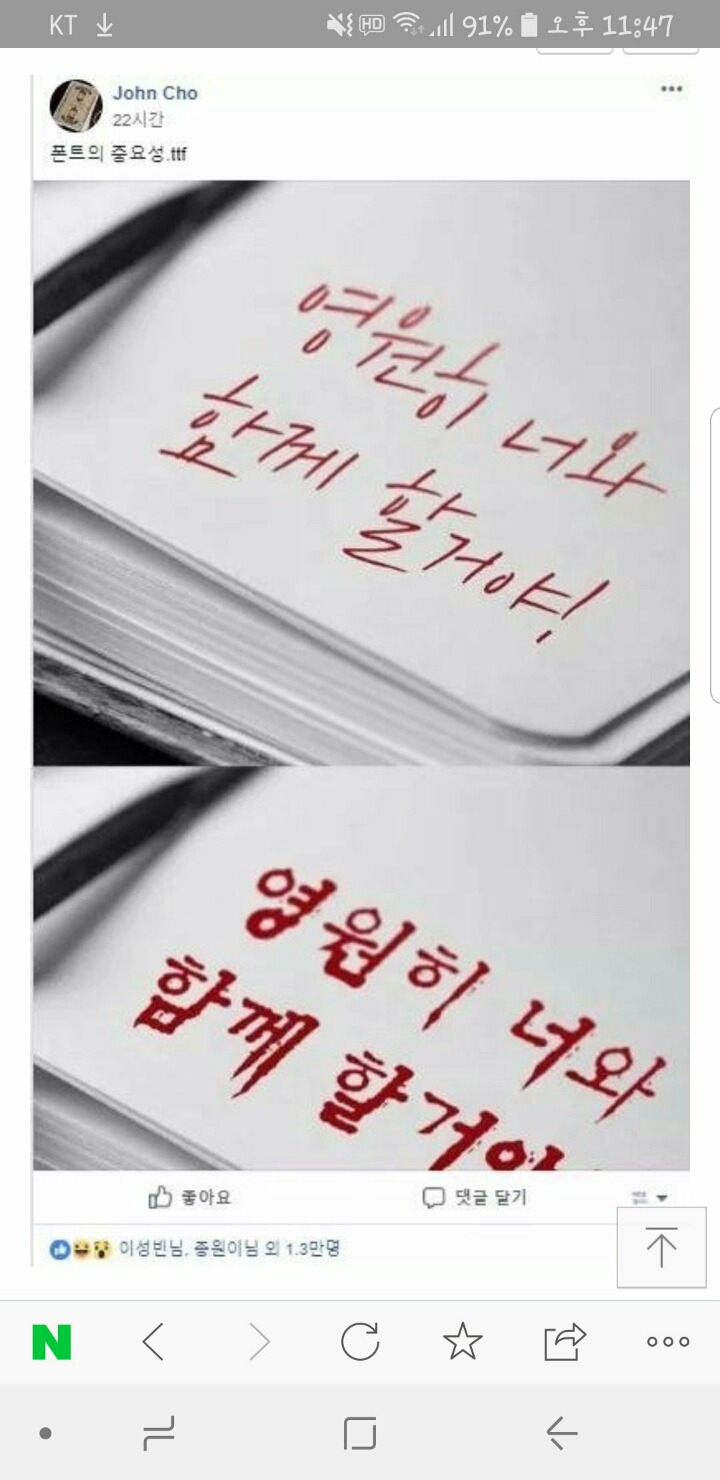 KT HD 91% 오후 11:47
John Cho
22시간
폰트의 중요성.ttf
영원히 너와
함께 할거야!
영원히 너와
함께 할거야
좋아요 댓글 달기
이성빈님, 증원이님 외 1.3만명
N